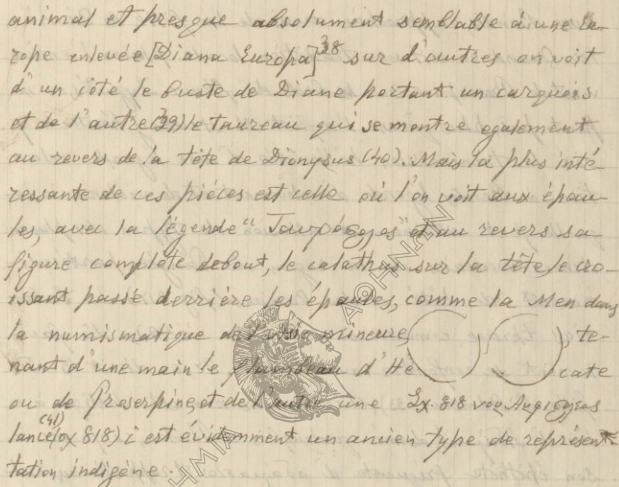 animal et presque absolument semblable à une Eu-
rope enlevée [Diana Europa]38 sur d'autres on voit
d'un côté le buste de Diane portant un carquois
et de l'autre (39) le taureau qui se montre egalement
au revers de la tête de Dionysus (40). Mais la plus inté-
ressante de ces pièces est celle où l'on voit aux épau-
les, avec la légende " " et au revers sa
figure complète debout, le calathus sur la tête le cro-
issant passé derrière les épaules, comme la Men dans
la numismatique de l'Asie mineure te-
nant d'une main le flambeau d'He cate
ou de Proserpine et de l'autre une Σχ. 818
lance (41) (σχ 818) c est évidemment un ancien type de représen-
tation indigène.
ΑΘΗΝΩΝ